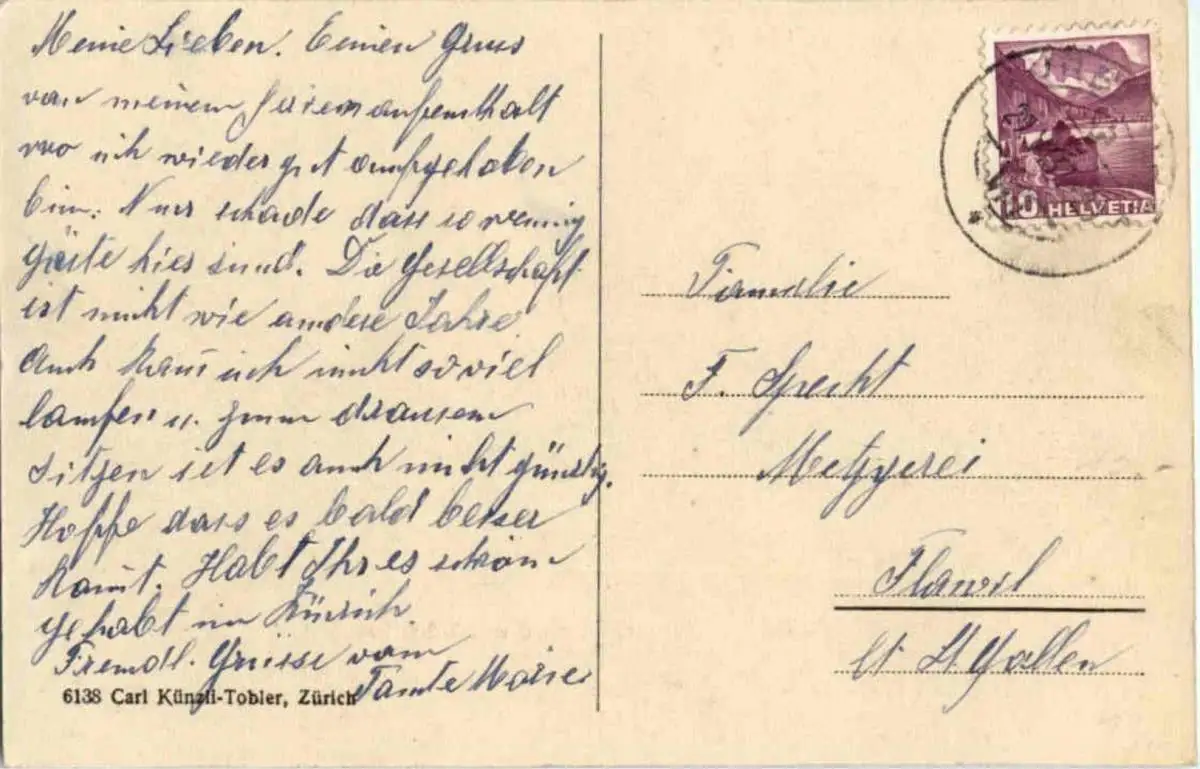 Meine Lieben. Einen Gruss
von meinem Ferienaufenthalt
wo ich wieder gut aufgehoben
bin. Nur schade dass so wenig
Gäste hier sind. Die Gesellschaft
ist nicht wie andere Jahre.
Auch kann ich nicht so viel
laufen u. zum draussen
sitzen ist es auch nicht günstig.
Hoffe dass es bald besser
kommt. Habt Ihr es schön
gehabt in Zürich.
Freundl. Grüsse von
Tante Marie
6138 Carl Künzli-Tobler, Zürich
10 HELVETIA
Familie
F. Specht
Metzgerei
Flawil
Ct St. Gallen